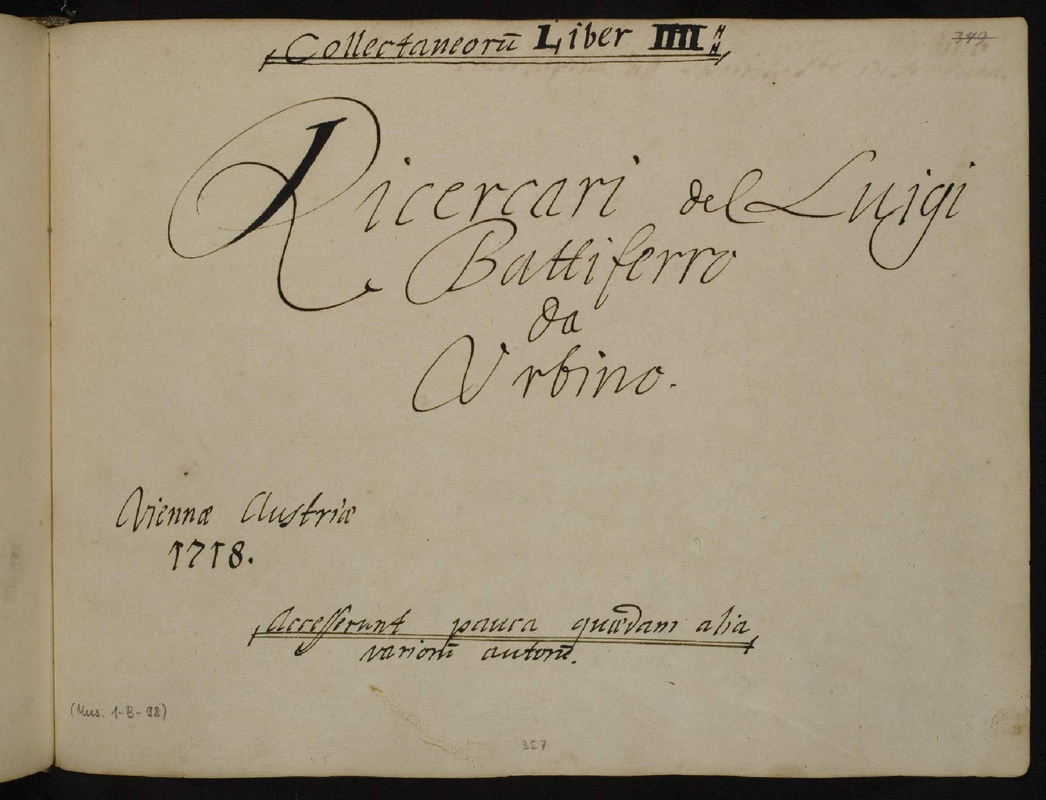 Collectaneorū Liber IIII
749
Ricercari del Luigi
Battiferro
da
Vrbino.
Viennæ Austriæ
1718.
Accesserunt pauca quædam alia
variorū autorū.
(Mus. 1-B-98)
357